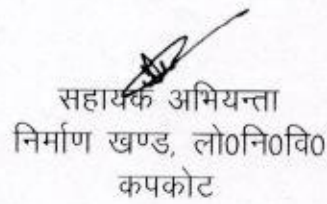 सहायक अभियन्ता
निर्माण खण्ड, लो0नि0वि0
कपकोट